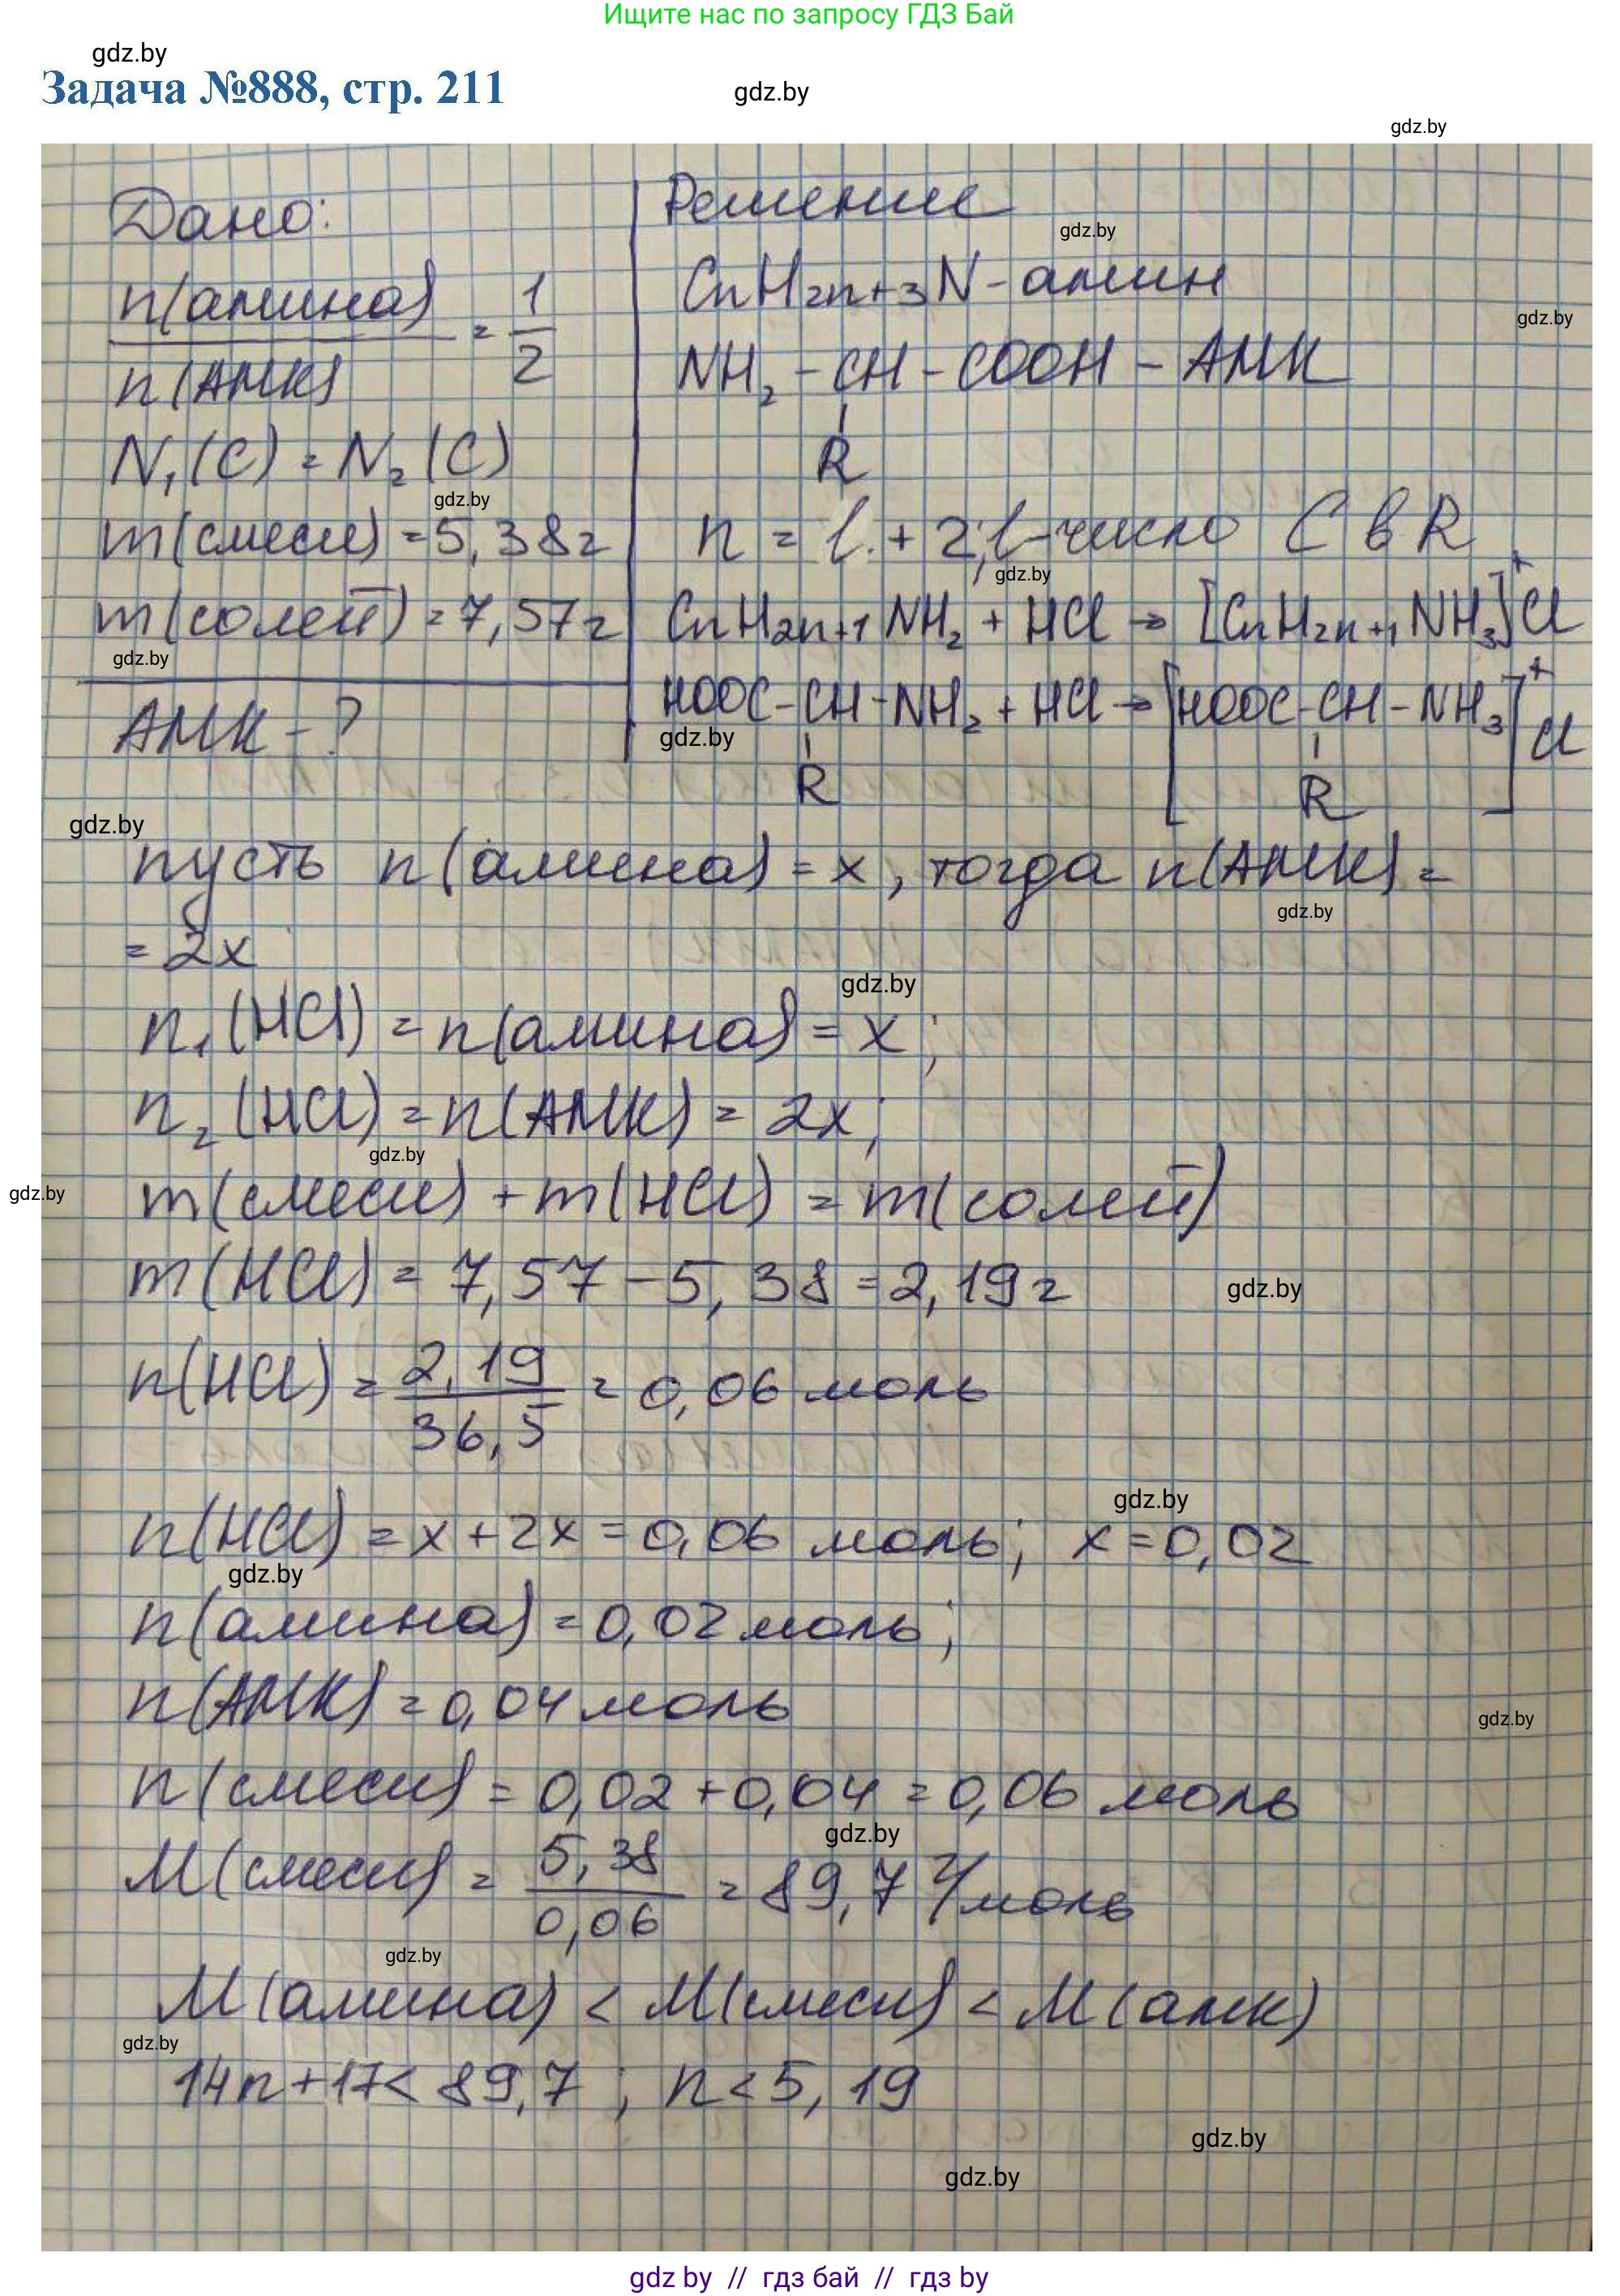 Ищите нас по запросу ГДЗ Бай
gdz.by
Задача №888, стр. 211
gdz.by
gdz.by
Дано:
n(амина)
n(АМК)
= 1/2
N₁(C) = N₂(C)
gdz.by
m(смеси) = 5,38г
m(солей) = 7,57г
gdz.by
АМК - ?
Решение
gdz.by
CnH2n+3N - амин
gdz.by
NH₂ - CH - COOH - АМК
R
n = l + 2; l - число C в R
gdz.by
CnH2n+1NH₂ + HCl → [CnH2n+1NH₃]⁺Cl
HOOC-CH-NH₂ + HCl → [HOOC-CH-NH₃]⁺Cl
gdz.by
R
R
gdz.by
пусть n(амина) = x, тогда n(АМК) =
gdz.by
= 2x
gdz.by
n₁(HCl) = n(амина) = x;
n₂(HCl) = n(АМК) = 2x;
gdz.by
gdz.by
m(смеси) + m(HCl) = m(солей)
m(HCl) = 7,57 - 5,38 = 2,19г
gdz.by
n(HCl) = 2,19/36,5 = 0,06 моль
gdz.by
n(HCl) = x + 2x = 0,06 моль; x = 0,02
gdz.by
n(амина) = 0,02 моль;
n(АМК) = 0,04 моль
gdz.by
n(смеси) = 0,02 + 0,04 = 0,06 моль
gdz.by
M(смеси) = 5,38/0,06 = 89,7 г/моль
gdz.by
M(амина) < M(смеси) < M(амк)
gdz.by
14n + 17 < 89,7; n < 5,19
gdz.by
gdz.by
gdz by // гдз бай // гдз by